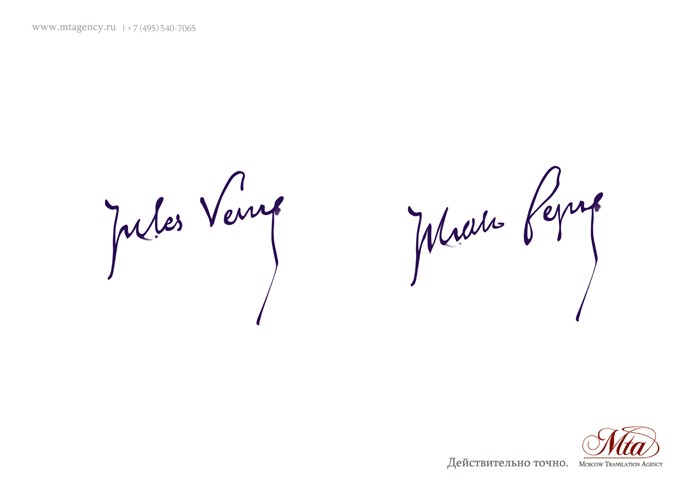 www.mtagency.ru | +7 (495) 540-7065
Jules Verne
Жюль Верн
Действительно точно.
Mta
Moscow Translation Agency